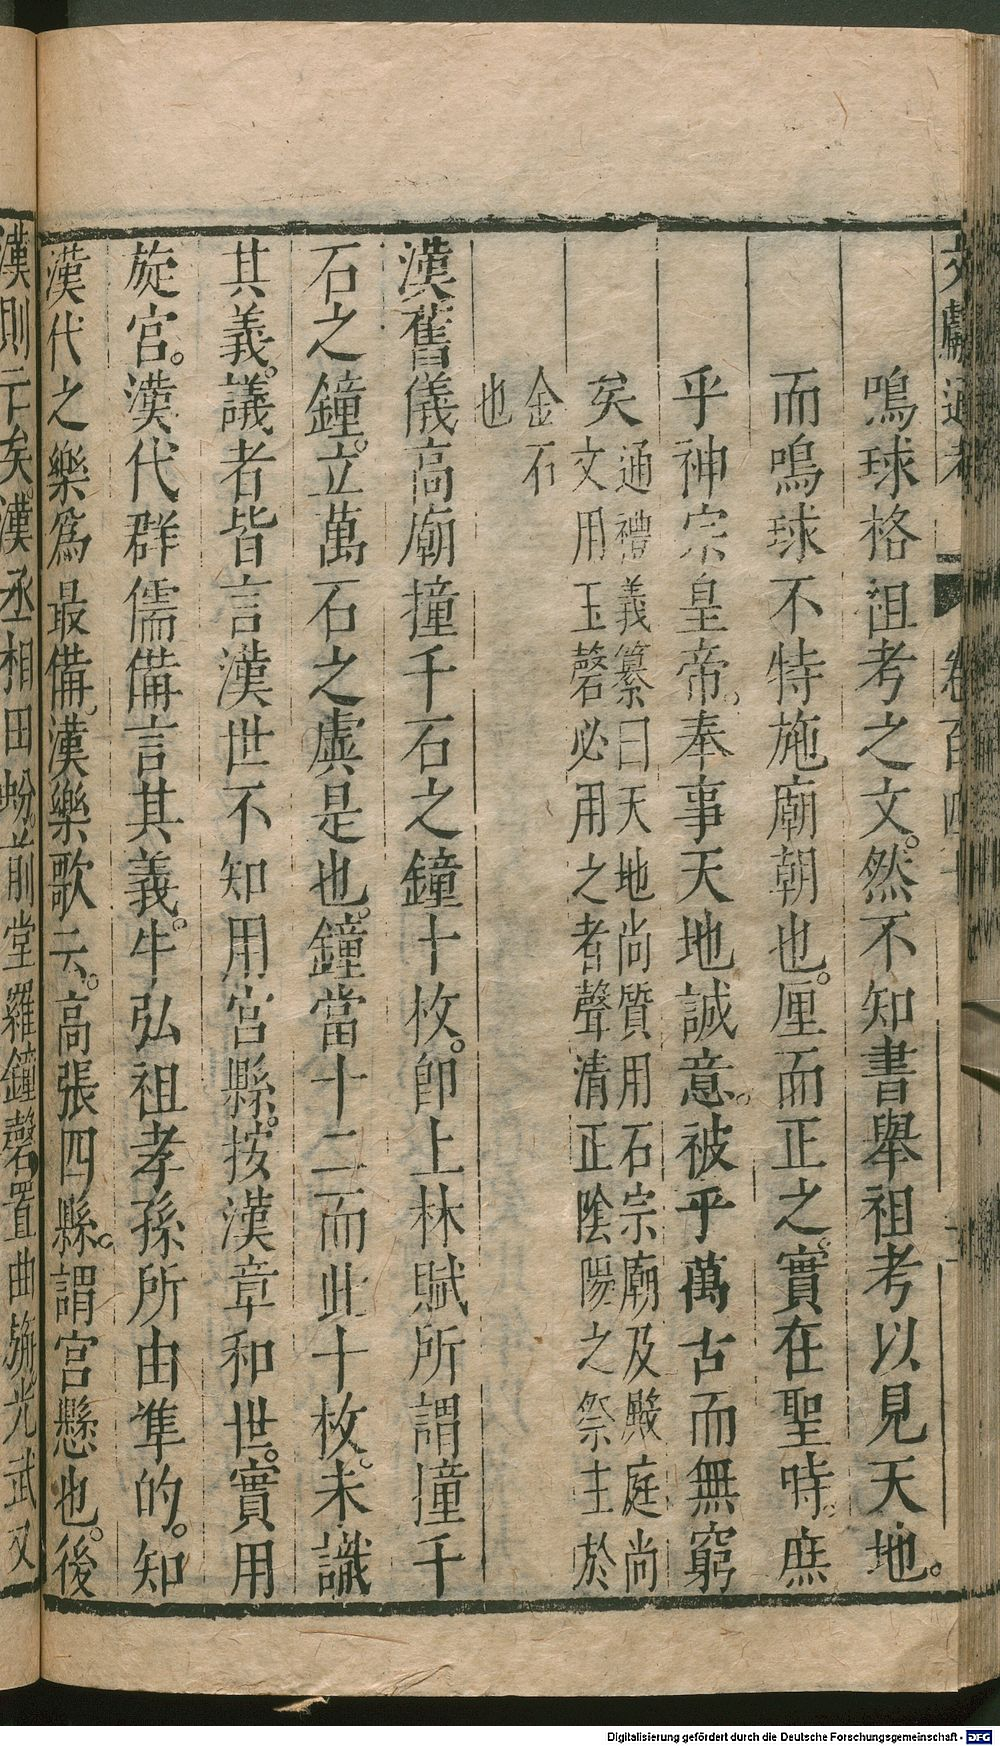 文獻通考　卷百四十
鳴球格祖考之文。然不知書舉祖考以見天地。
而鳴球不特施廟朝也。厘而正之。實在聖時。庶
乎神宗皇帝。奉事天地誠意。被乎萬古而無窮
矣通禮義纂曰天地尚質用石宗廟及殿庭尚
文用玉磬必用之者聲清正陰陽之祭主於
金石
也
漢舊儀高廟撞千石之鐘十枚。卽上林賦所謂撞千
石之鐘。立萬石之虡是也。鐘當十二而此十枚。未識
其義。議者皆言漢世不知用宮縣。按漢章和世。實用
旋宮。漢代群儒備言其義。牛弘祖孝孫所由準的。知
漢代之樂爲最備。漢樂歌云。高張四縣。謂宮懸也。後
漢則亡矣。漢丞相田蚡。前堂羅鐘磬置曲旃。光武又
Digitalisierung gefördert durch die Deutsche Forschungsgemeinschaft - DFG